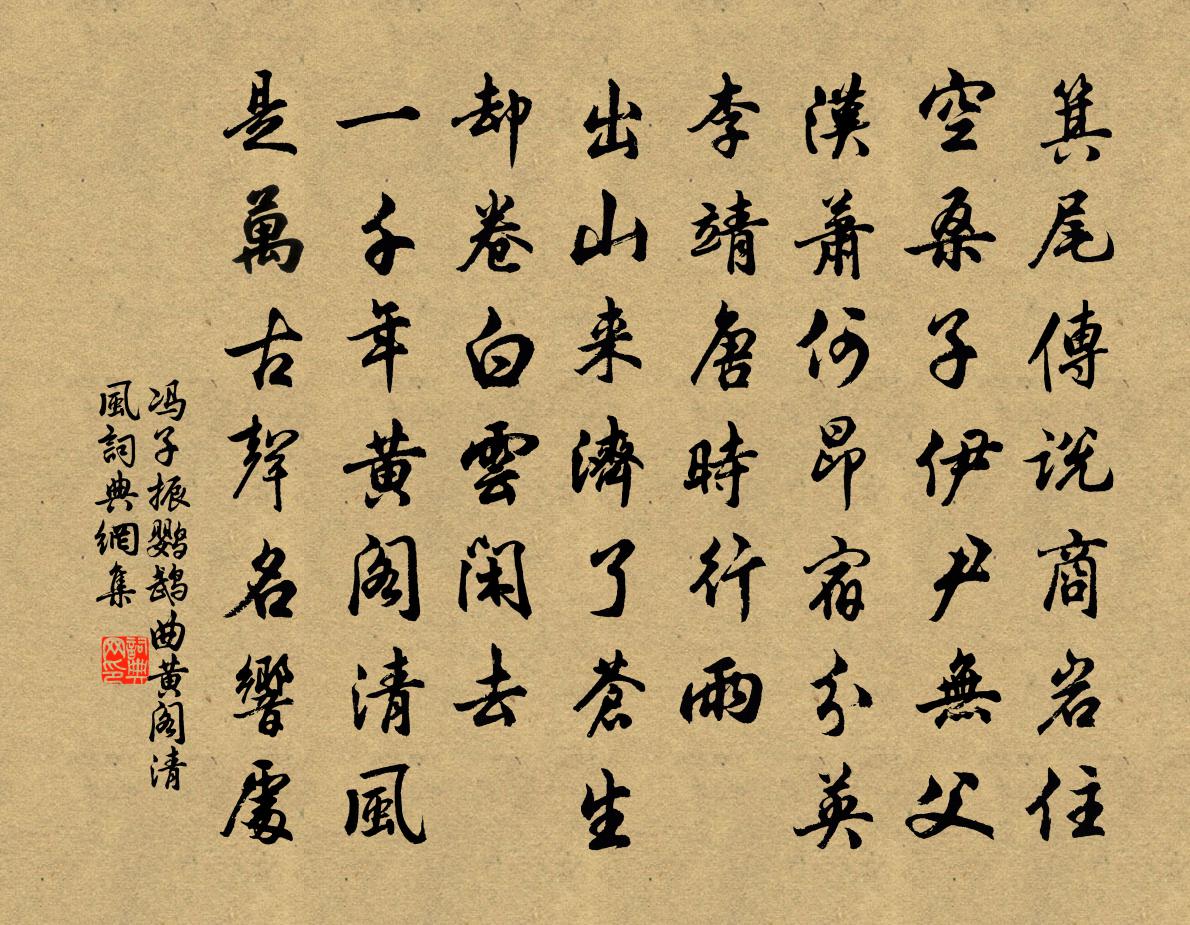 箕尾傳説商岩住
空桑子伊尹無父
漢蕭何昴宿分英
李靖唐時行雨
出山来濟了蒼生
却卷白雲閑去
一千年黄阁清風
是萬古聲名響處
冯子振鹦鹉曲黄阁清
風詞典網集
詞典网印